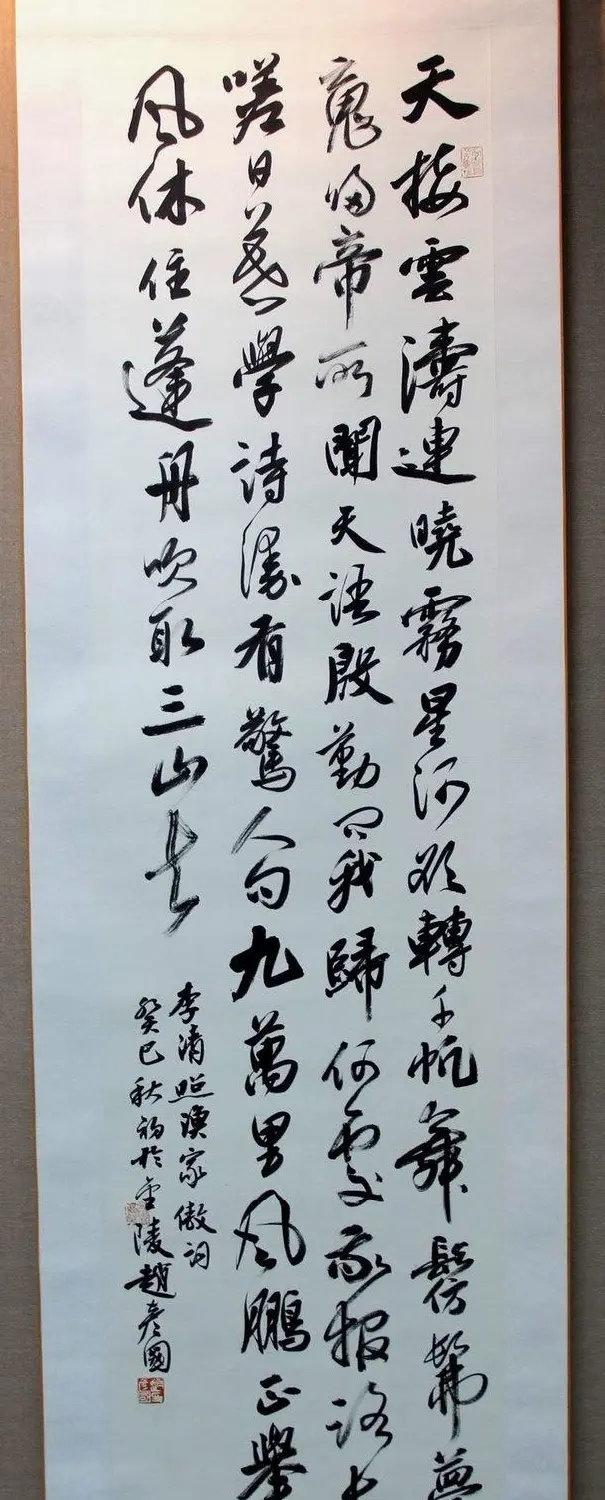 天接雲濤連曉霧星河欲轉千帆舞髣髴夢
魂归帝所聞天語殷勤問我歸何處我報路長
嗟日暮學詩漫有驚人句九萬里風鵬正舉
風休住蓬舟吹取三山去
李清照漁家傲詞
癸巳秋初於金陵趙彥國